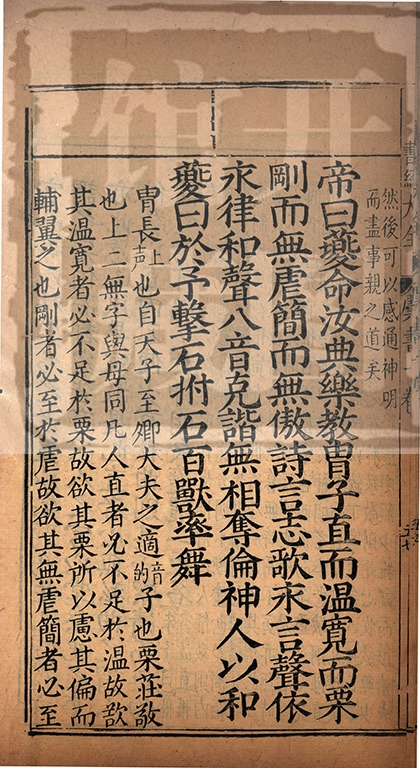 然後可以感通神明
而盡事親之道矣
帝曰夔命汝典樂教胄子直而溫寬而栗
剛而無虐簡而無傲詩言志歌永言聲依
永律和聲八音克諧無相奪倫神人以和
夔曰於予擊石拊石百獸率舞
胄長上聲也自天子至卿大夫之適音的子也栗莊敬
也上二無字與毋同凡人直者必不足於溫故欲
其溫寬者必不足於栗故欲其栗所以慮其偏而
輔翼之也剛者必至於虐故欲其無虐簡者必至